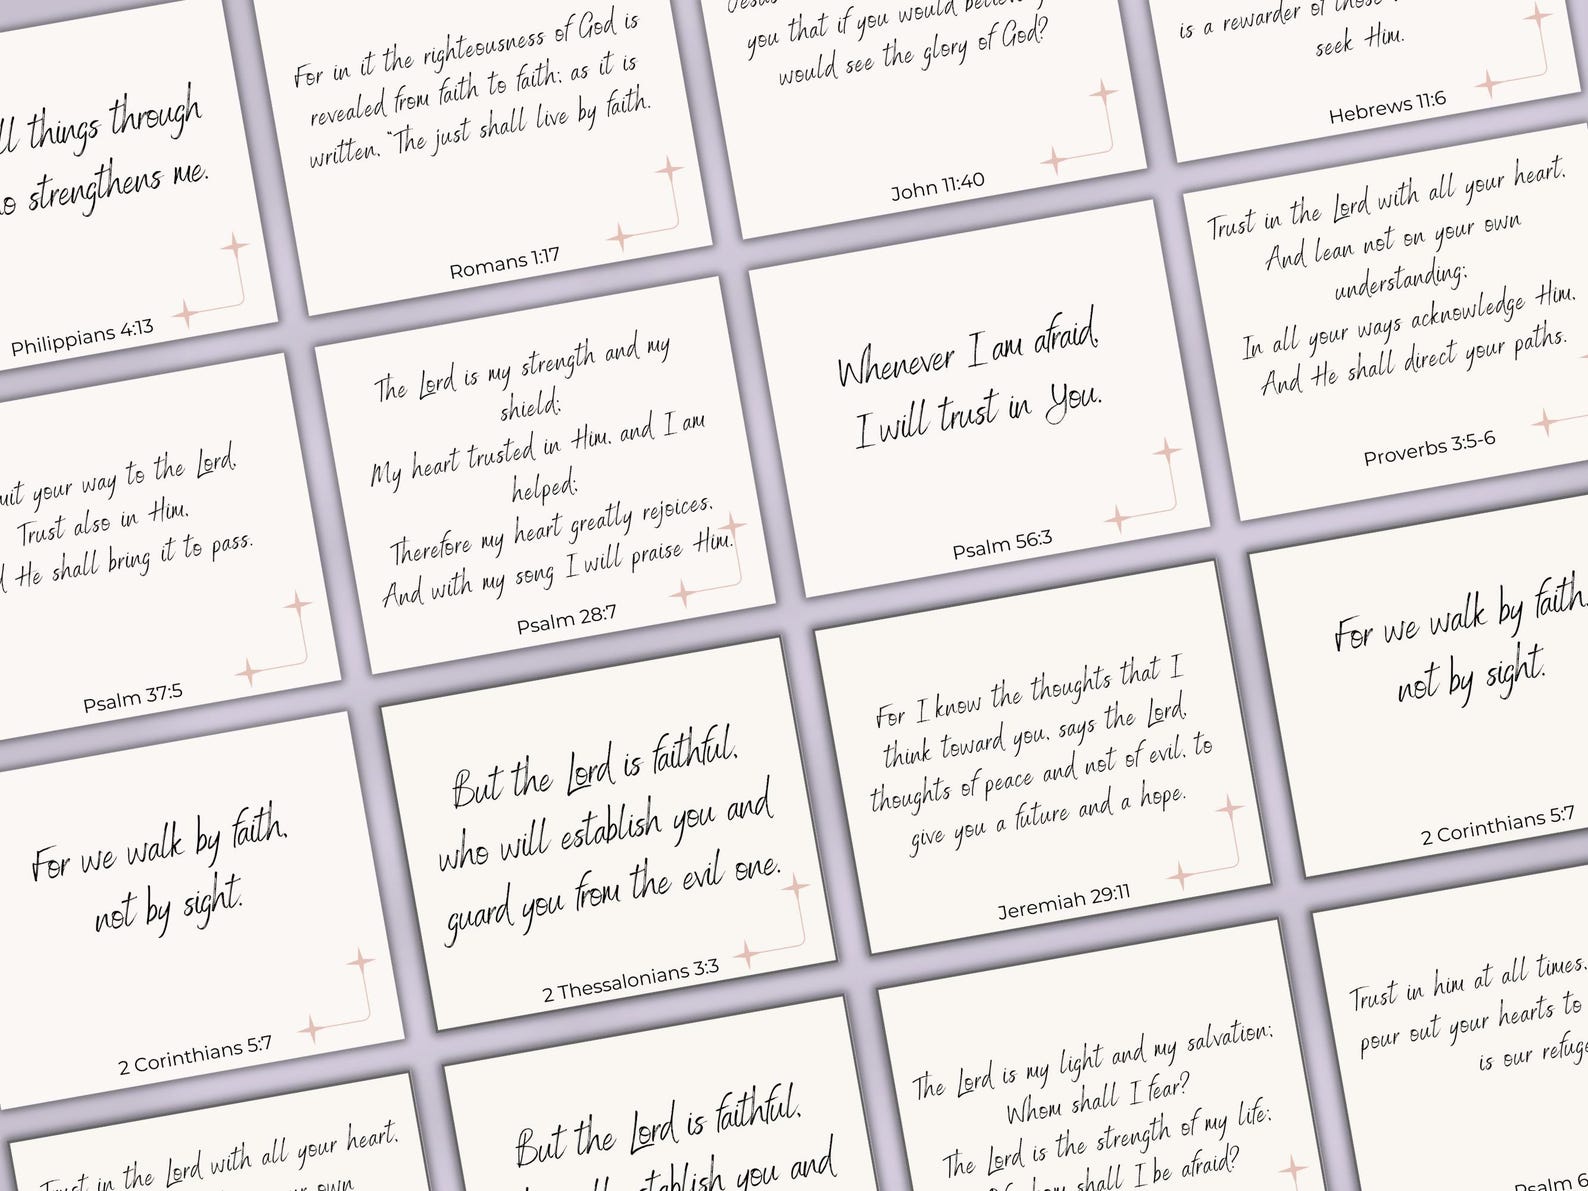 ll things through
strengthens me.
Philippians 4:13
For in it the righteousness of God is
revealed from faith to faith; as it is
written, "The just shall live by faith.
Romans 1:17
you that if you would
would see the glory of God?
John 11:40
is a rewarder of those
seek Him.
Hebrews 11:6
your way to the Lord,
Trust also in Him,
He shall bring it to pass.
Psalm 37:5
The Lord is my strength and my
shield;
My heart trusted in Him, and I am
helped;
Therefore my heart greatly rejoices,
And with my song I will praise Him.
Psalm 28:7
Whenever I am afraid,
I will trust in You.
Psalm 56:3
Trust in the Lord with all your heart,
And lean not on your own
understanding;
In all your ways acknowledge Him,
And He shall direct your paths.
Proverbs 3:5-6
For we walk by faith,
not by sight.
2 Corinthians 5:7
But the Lord is faithful,
who will establish you and
guard you from the evil one.
2 Thessalonians 3:3
For I know the thoughts that I
think toward you, says the Lord,
thoughts of peace and not of evil, to
give you a future and a hope.
Jeremiah 29:11
For we walk by faith,
not by sight.
2 Corinthians 5:7
Trust in the Lord with all your heart,
own
But the Lord is faithful,
establish you and
The Lord is my light and my salvation;
Whom shall I fear?
The Lord is the strength of my life;
shall I be afraid?
Trust in him at all times,
pour out your hearts to
is our refuge
Psalm 6